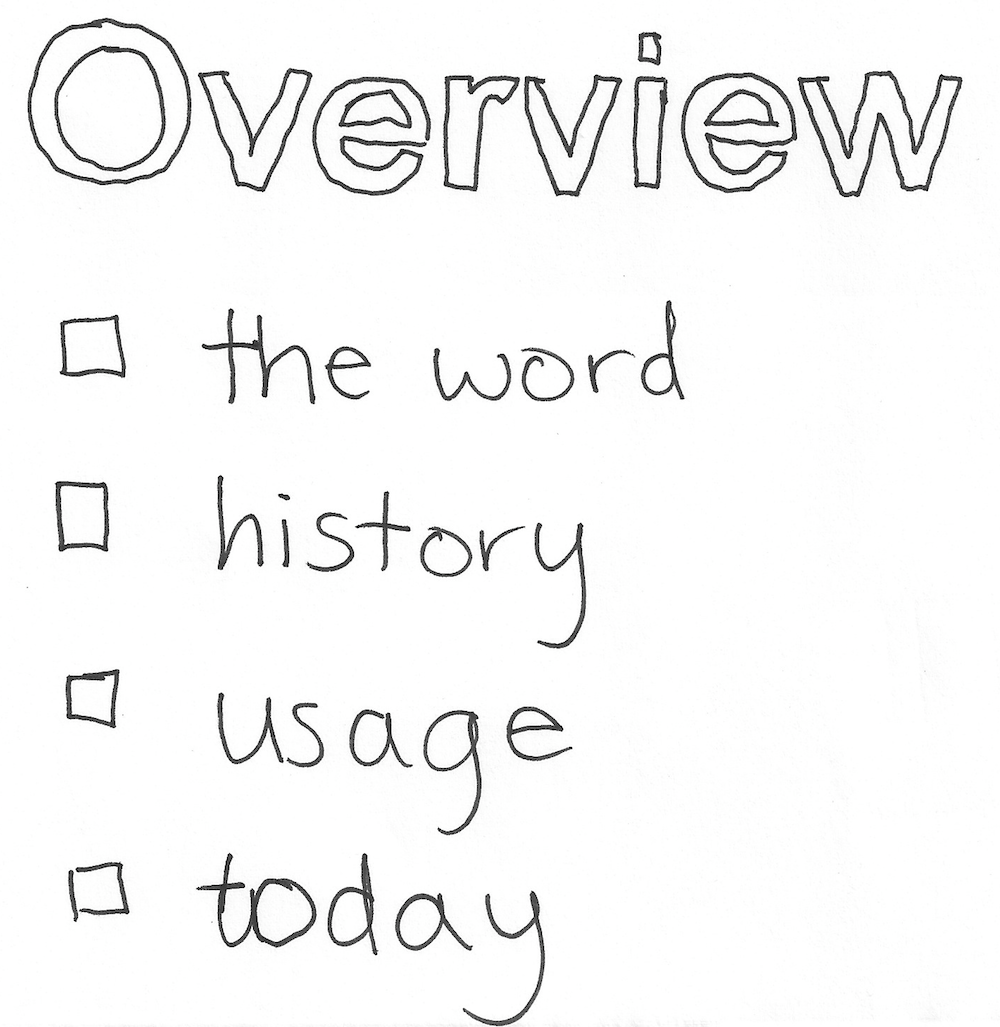 Overview
the word
history
usage
today